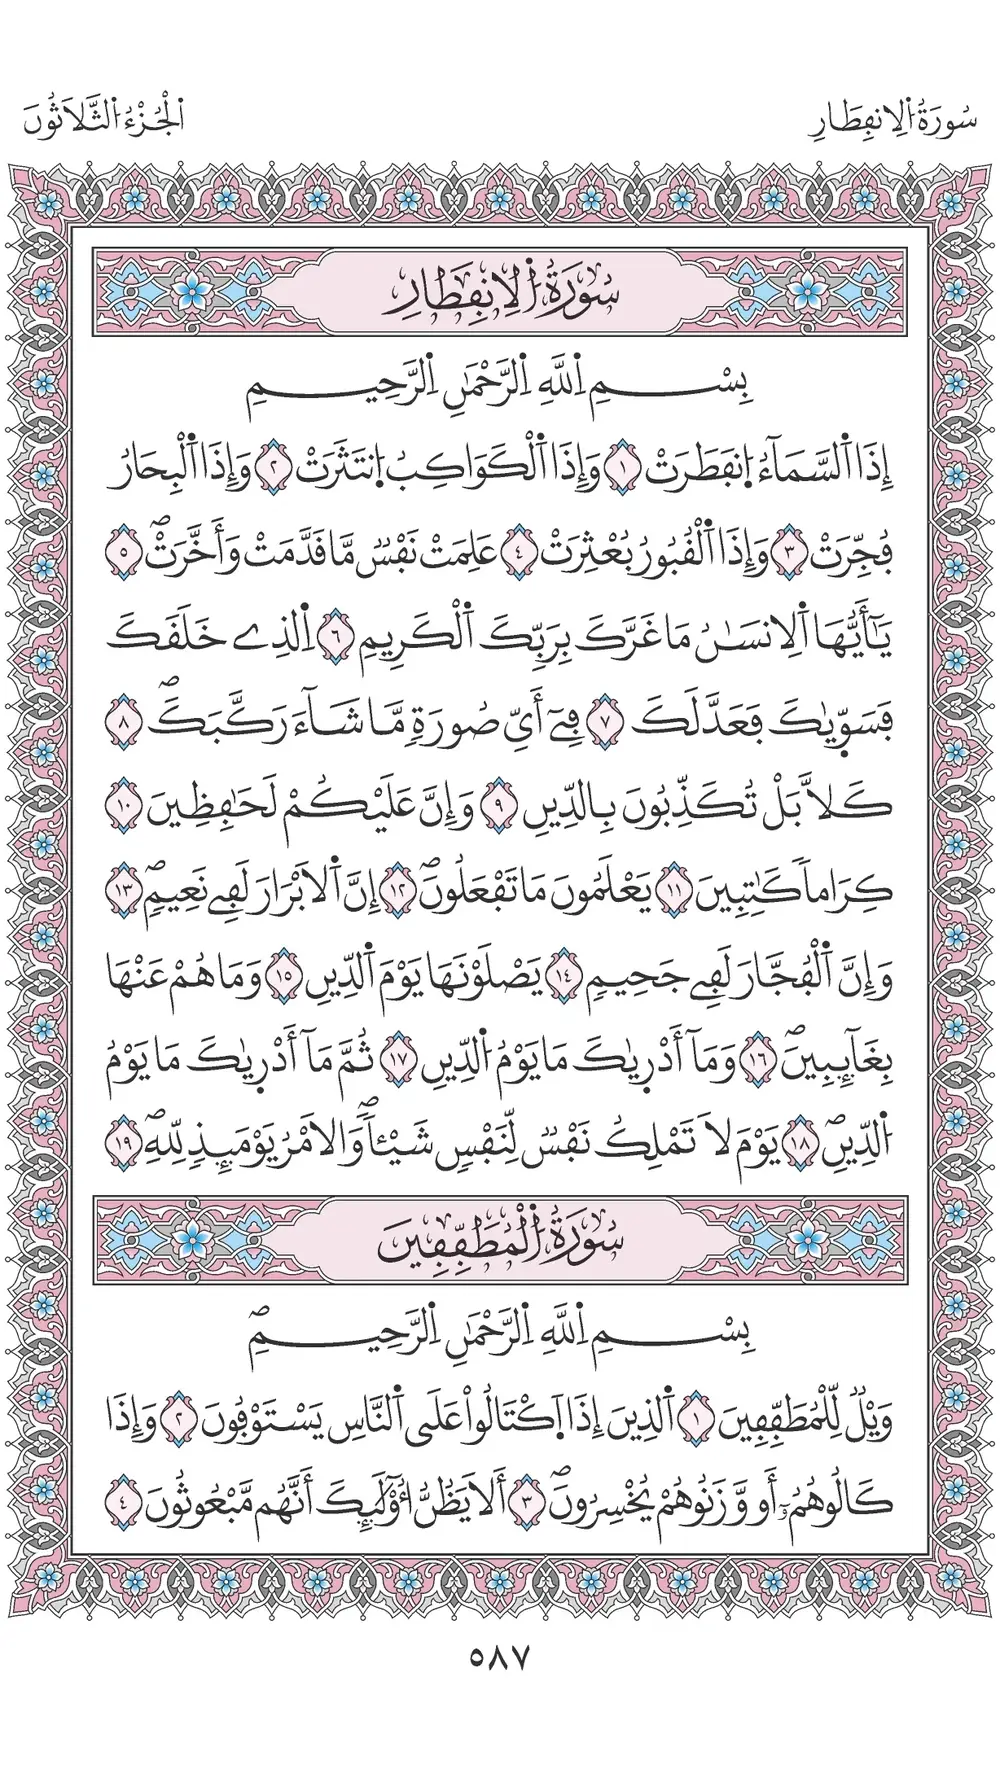 سُورَةُ اُ۬لِانفِطَارِ
اَ۬لْجُزْءُ اُ۬لثَّلَاثُونَ
سُورَةُ اُ۬لِانفِطَارِ
بِسْمِ اِ۬للَّهِ اِ۬لرَّحْمَٰنِ اِ۬لرَّحِيمِ
إِذَا اَ۬لسَّمَآءُ اُ۪نفَطَرَتْ ١ وَإِذَا اَ۬لْكَوَاكِبُ اُ۪نتَثَرَتْ ٢ وَإِذَا اَ۬لْبِحَارُ
فُجِّرَتْ ٣ وَإِذَا اَ۬لْقُبُورُ بُعْثِرَتْ ٤ عَلِمَتْ نَفْسٞ مَّا قَدَّمَتْ وَأَخَّرَتْۖ ٥
يَٰٓأَيُّهَا اَ۬لِانسَٰنُ مَا غَرَّكَ بِرَبِّكَ اَ۬لْكَرِيمِ ٦ اِ۬لذِے خَلَقَكَ
فَسَوّ۪يٰكَ فَعَدَّلَكَ ٧ فِےٓ أَيِّ صُورَةٖ مَّا شَآءَ رَكَّبَكَۖ ٨
كَلَّا بَلْ تُكَذِّبُونَ بِالدِّينِ ٩ وَإِنَّ عَلَيْكُمْ لَحَٰفِظِينَ ١٠
كِرَاماٗ كَٰتِبِينَ ١١ يَعْلَمُونَ مَا تَفْعَلُونَۖ ١٢ إِنَّ اَ۬لَابْرَارَ لَفِے نَعِيمٖۖ ١٣
وَإِنَّ اَ۬لْفُجَّارَ لَفِے جَحِيمٖ ١٤ يَصْلَوْنَهَا يَوْمَ اَ۬لدِّينِ ١٥ وَمَا هُمْ عَنْهَا
بِغَآئِبِينَۖ ١٦ وَمَآ أَدْر۪يٰكَ مَا يَوْمُ اُ۬لدِّينِ ١٧ ثُمَّ مَآ أَدْر۪يٰكَ مَا يَوْمُ
اُ۬لدِّينِۖ ١٨ يَوْمَ لَا تَمْلِكُ نَفْسٞ لِّنَفْسٖ شَيْـٔاٗۖ وَالَامْرُ يَوْمَئِذٖ لِّلهِۖ ١٩
سُورَةُ اُ۬لْمُطَفِّفِينَ
بِسْمِ اِ۬للَّهِ اِ۬لرَّحْمَٰنِ اِ۬لرَّحِيمِۖ
وَيْلٞ لِّلْمُطَفِّفِينَ ١ اَ۬لذِينَ إِذَا اَ۪كْتَالُواْ عَلَى اَ۬لنَّاسِ يَسْتَوْفُونَ ٢ وَإِذَا
كَالُوهُمُۥٓ أَو وَّزَنُوهُمْ يُخْسِرُونَۖ ٣ أَلَا يَظُنُّ أُوْلَٰٓئِكَ أَنَّهُم مَّبْعُوثُونَ ٤
٥٨٧